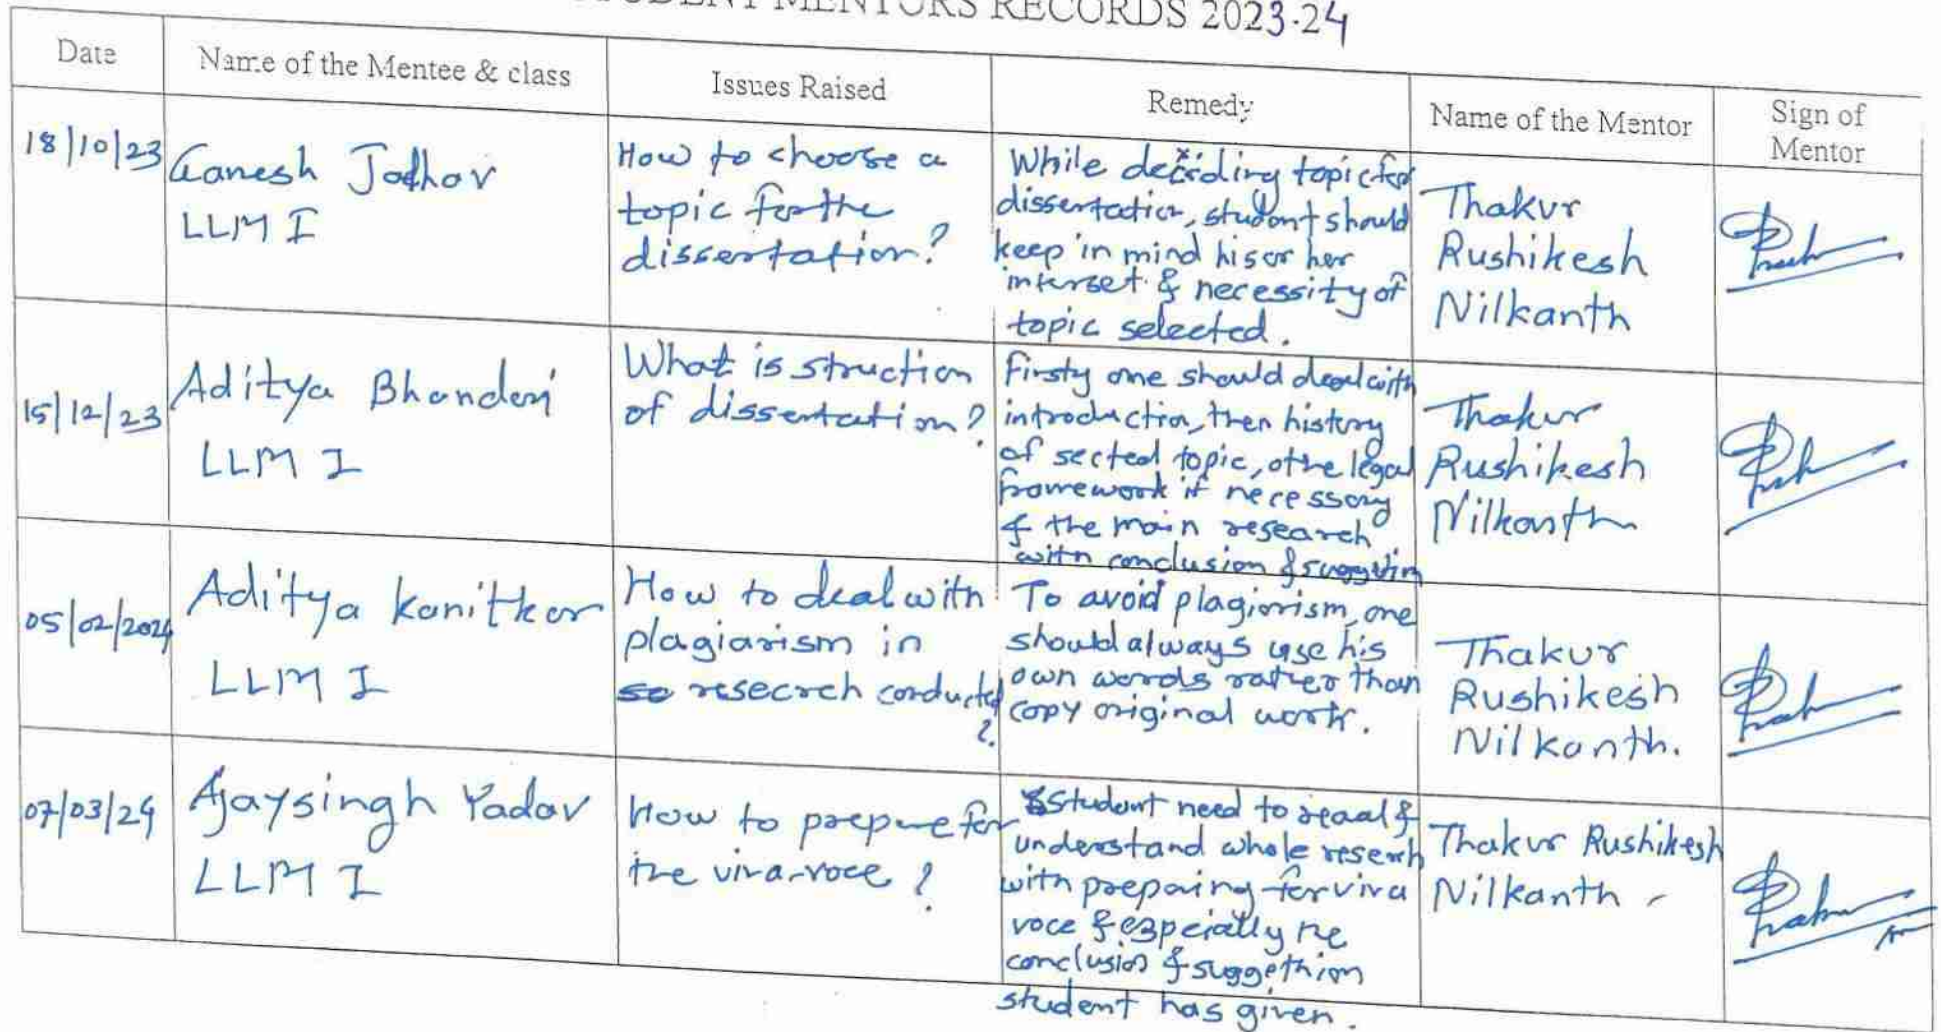 STUDENT MENTORS RECORDS 2023-24
Date
Name of the Mentee & class
Issues Raised
Remedy
Name of the Mentor
Sign of
Mentor
18/10/23
Ganesh Jadhav
LLM I
How to choose a
topic for the
dissertation?
While deciding topic for
dissertation, student should
keep in mind his or her
interset & necessity of
topic selected.
Thakur
Rushikesh
Nilkanth
15/12/23
Aditya Bhandari
LLM I
What is struction
of dissertation?
Firsty one should deal with
introduction, then history
of sected topic, othe legal
framework if necessary
& the main research
with conclusion &
Thakur
Rushikesh
Nilkanth
05/02/2024
Aditya Kanitkar
LLM I
How to deal with
plagiarism in
research conducted
?
To avoid plagiarism, one
should always use his
own words rather than
copy original work.
Thakur
Rushikesh
Nilkanth.
07/03/24
Ajaysingh Yadav
LLM I
How to prepare for
the viva-voce ?
Student need to read &
understand whole reserch
with preparing for viva
voce & especially the
conclusion & suggethion
student has given.
Thakur Rushikesh
Nilkanth